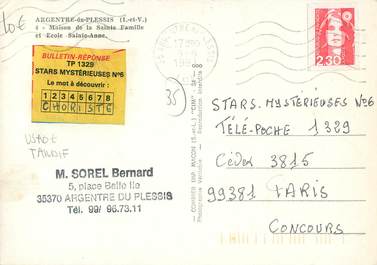 10€
ARGENTRE-du-PLESSIS (I.-et-V.)
4 - Maison de la Sainte Famille
et Ecole Sainte-Anne.
BULLETIN-RÉPONSE
TP 1329
STARS MYSTÉRIEUSES N°6
Le mot à découvrir :
1 2 3 4 5 6 7 8
CHORISTE
35
USAGE
TARDIF
M. SOREL Bernard
5, place Belle Ile
35370 ARGENTRE DU PLESSIS
Tél. 99/ 96.73.11
COMBIER IMP. MACON (S.-et-L.) "CIM"
Reproduction interdite
2,30
STARS. MYSTÉRIEUSES N°6
TÉLÉ-POCHE 1329
Cédex 3815
99381 PARIS
CONCOURS